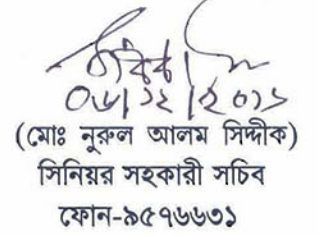 ০৬/১২/২০১৬
(মোঃ নুরুল আলম সিদ্দীক)
সিনিয়র সহকারী সচিব
ফোন-৯৫৭৬৬৩১